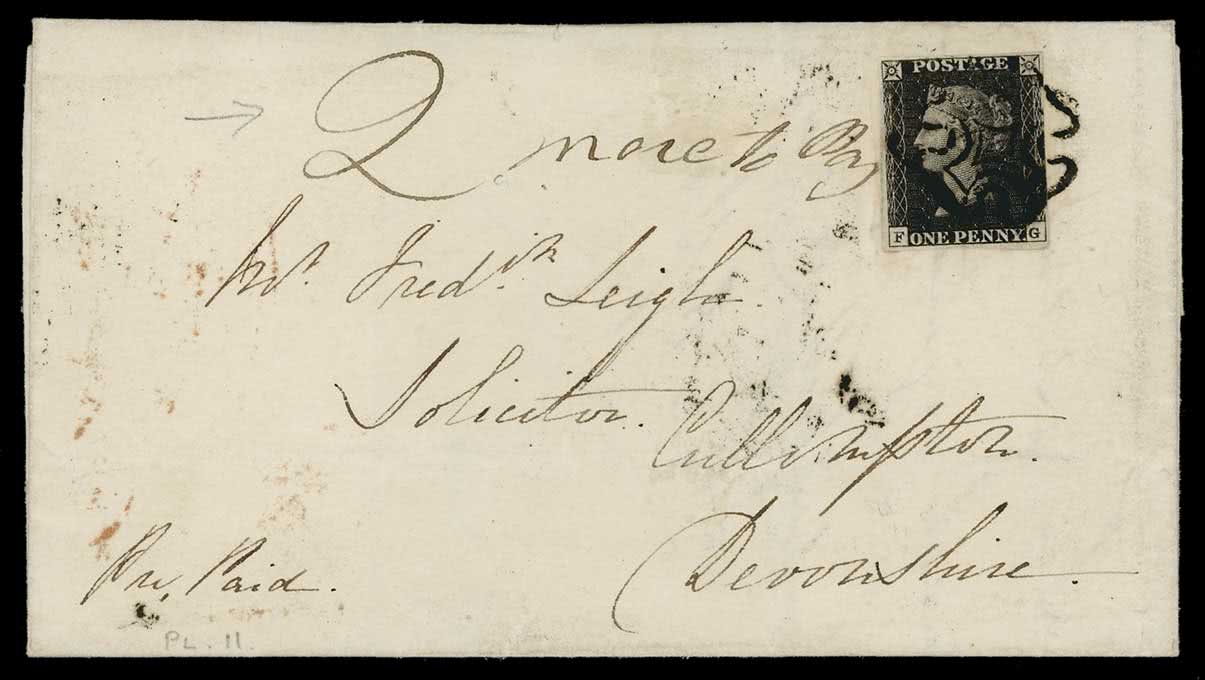 POSTAGE
2 more to Pay
F ONE PENNY. G
Mr. Fredk. Leigh.
Solicitor.
Cullompton.
Devonshire.
Pre, Paid.
PL. 11.